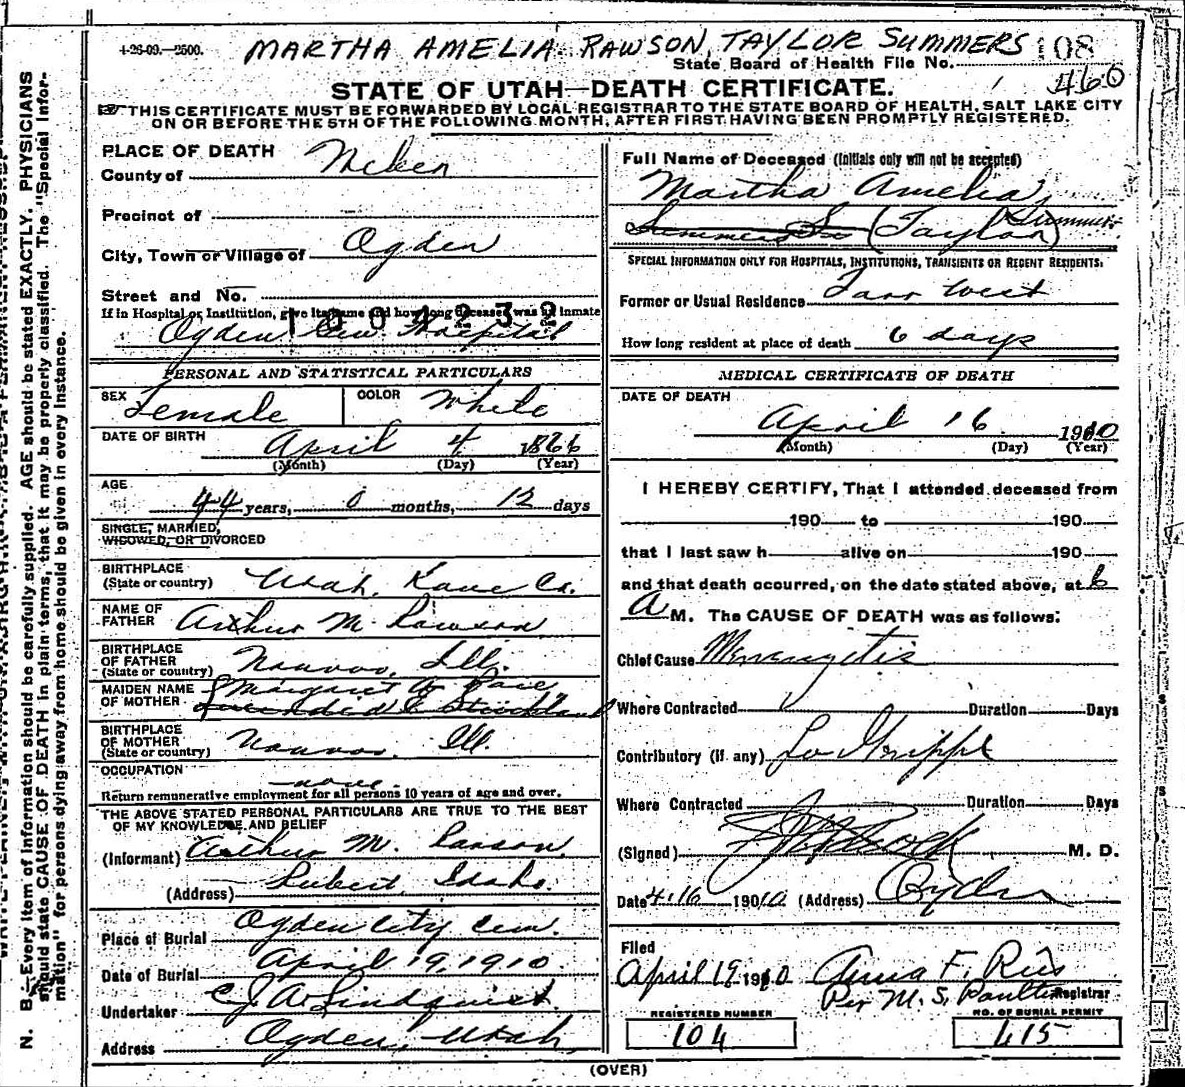 4-26-09.—2500.
MARTHA AMELIA RAWSON, TAYLOR SUMMERS
State Board of Health File No. 108
460
STATE OF UTAH—DEATH CERTIFICATE.
THIS CERTIFICATE MUST BE FORWARDED BY LOCAL REGISTRAR TO THE STATE BOARD OF HEALTH, SALT LAKE CITY
ON OR BEFORE THE 5TH OF THE FOLLOWING MONTH, AFTER FIRST HAVING BEEN PROMPTLY REGISTERED.
N. B.—Every item of information should be carefully supplied. AGE should be stated EXACTLY. PHYSICIANS
should state CAUSE OF DEATH in plain terms, that it may be properly classified. The "Special Infor-
mation" for persons dying away from home should be given in every instance.
PLACE OF DEATH
County of Weber
Precinct of
City, Town or Village of Ogden
Street and No.
If in Hospital or Institution, give its name and how long deceased was an inmate
1004232
Ogden Gen Hospital
PERSONAL AND STATISTICAL PARTICULARS
SEX Female COLOR White
DATE OF BIRTH April 4 1866
(Month) (Day) (Year)
AGE
44 years, 0 months, 12 days
SINGLE, MARRIED,
WIDOWED, OR DIVORCED
BIRTHPLACE
(State or country) Utah, Kane Co.
NAME OF
FATHER Arthur M. Rawson
BIRTHPLACE
OF FATHER
(State or country) Nauvoo, Ill.
MAIDEN NAME
OF MOTHER Margaret A. Pace
BIRTHPLACE
OF MOTHER
(State or country) Nauvoo, Ill.
OCCUPATION
none
Return remunerative employment for all persons 10 years of age and over.
THE ABOVE STATED PERSONAL PARTICULARS ARE TRUE TO THE BEST
OF MY KNOWLEDGE AND BELIEF
(Informant) Arthur M. Rawson
(Address) Rubert, Idaho.
Place of Burial Ogden City Cem.
Date of Burial April 19, 1910.
Undertaker C. J. A. Lindquist
Address Ogden, Utah,
Full Name of Deceased (Initials only will not be accepted)
Martha Amelia
(Taylor) Summers
SPECIAL INFORMATION ONLY FOR HOSPITALS, INSTITUTIONS, TRANSIENTS OR RECENT RESIDENTS.
Former or Usual Residence Farr West
How long resident at place of death 6 days
MEDICAL CERTIFICATE OF DEATH
DATE OF DEATH
April 16 1910
(Month) (Day) (Year)
I HEREBY CERTIFY, That I attended deceased from
190 to 190
that I last saw h alive on 190
and that death occurred, on the date stated above, at 6
A M. The CAUSE OF DEATH was as follows:
Chief Cause Menengetis
Where Contracted Duration Days
Contributory (if any) La Grippe
Where Contracted Duration Days
(Signed) M. D.
Date 4-16 1910 (Address) Ogden
Filed
April 19 1910 Anna F. Ries
Per M. S. Registrar
REGISTERED NUMBER
104
NO. OF BURIAL PERMIT
415
(OVER)